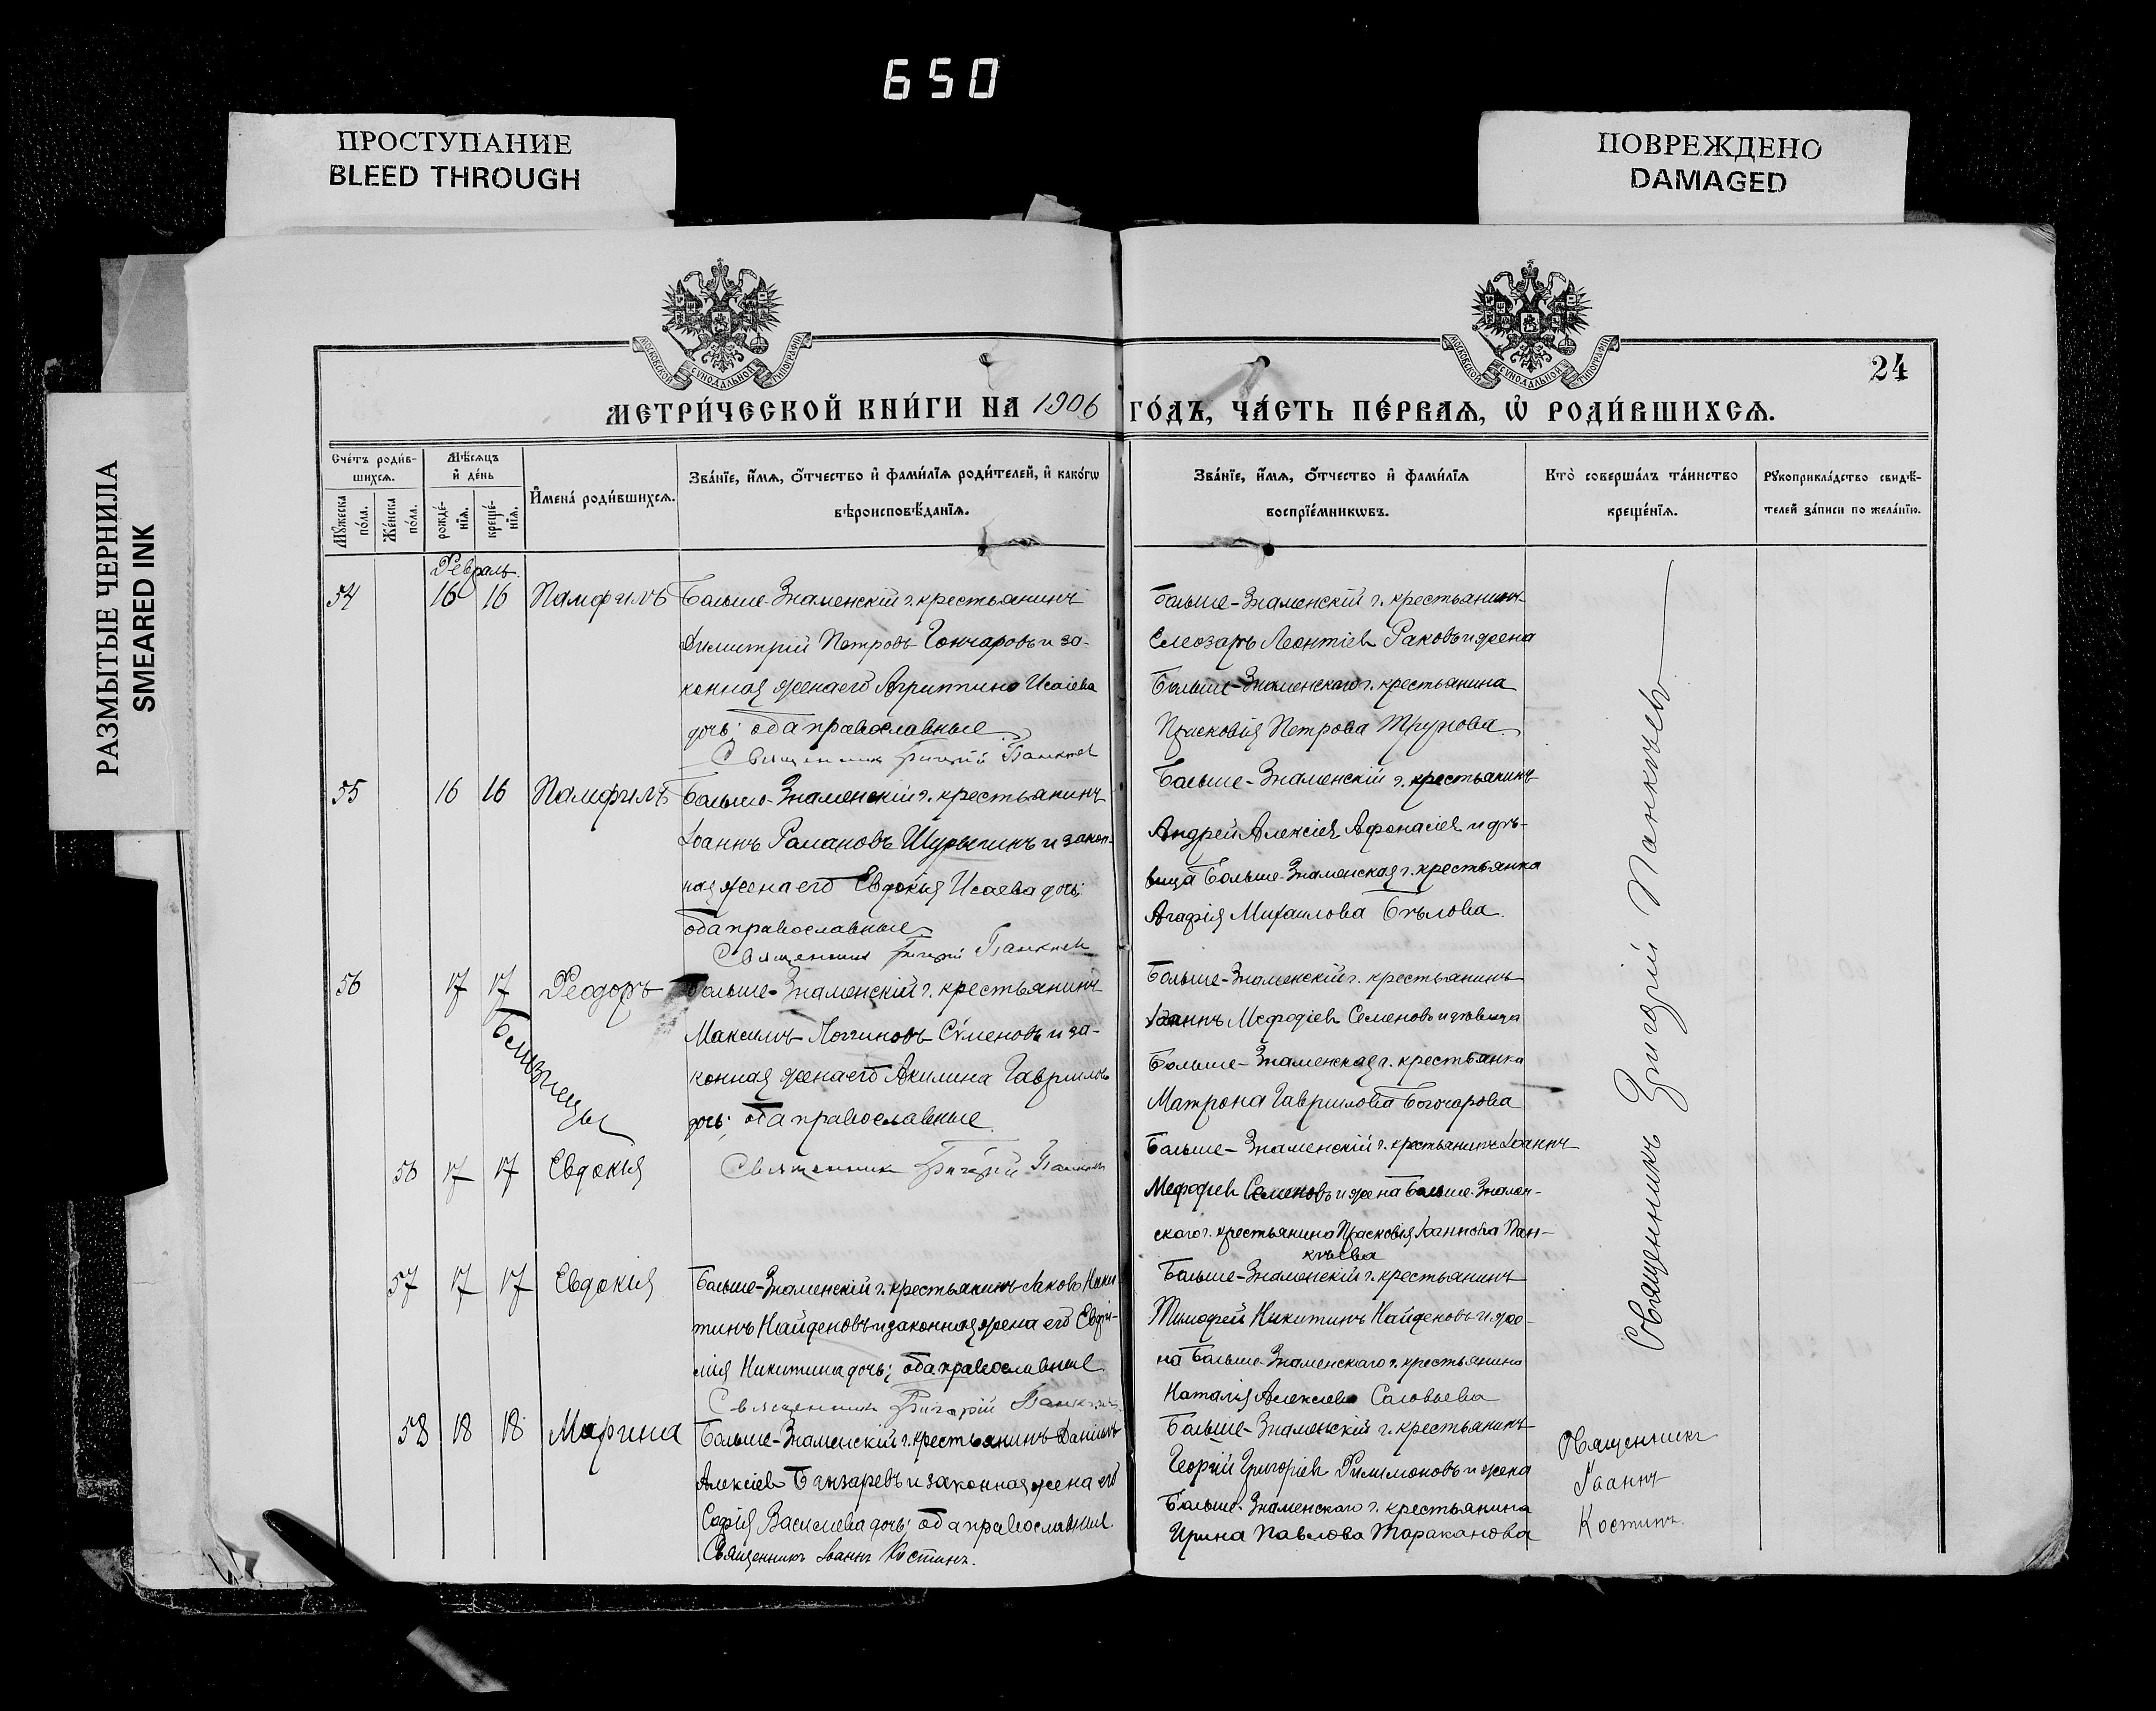 650
ПРОСТУПАНИЕ
BLEED THROUGH
ПОВРЕЖДЕНО
DAMAGED
РАЗМЫТЫЕ ЧЕРНИЛА
SMEARED INK
МОСКОВСКОЙ СѴНОДАЛЬНОЙ ТИПОГРАФІИ
МОСКОВСКОЙ СѴНОДАЛЬНОЙ ТИПОГРАФІИ
24
МЕТРИ́ЧЕСКОЙ КНИ́ГИ НА 1906 ГО́ДЪ, ЧА́СТЬ ПЕ́РВАѦ, Ѡ҆ РОДИ́ВШИХСѦ.
Сче́тъ роди́в-
шихсѧ.
Мꙋ́жеска по́ла.
Же́нска по́ла.
Мѣ́сѧцъ
и҆ де́нь
рожде́-
нїѧ.
креще́-
нїѧ.
И҆мена̀ роди́вшихсѧ.
Зва́нїе, и҆́мѧ, ѻ҆́тчество и҆ фами́лїѧ роди́телей, и҆ како́гѡ
вѣроисповѣ́данїѧ.
Зва́нїе, и҆́мѧ, ѻ҆́тчество и҆ фами́лїѧ
воспрїе́мникѡвъ.
Кто̀ соверша́лъ та́инство
креще́нїѧ.
Рꙋкоприкла́дство свидѣ́-
телей за́писи по жела́нїю.
Февраль.
54 16 16 Памфилъ
Больше-Знаменскій г. крестьянинъ
Димитрій Петровъ Гончаровъ и за-
конная жена его Агриппина Исаіева
дочь; оба православные
Священникъ Григорій Панкѣев
Больше-Знаменскій г. крестьянинъ
Елеозаръ Леонтіев Раковъ и жена
Больше-Знаменскаго г. крестьянина
Прасковія Петрова Трунова
55 16 16 Памфилъ
Больше-Знаменскій г. крестьянинъ
Іоаннъ Романовъ Шурыгинъ и закон-
ная жена его Евдокія Исаева дочь;
оба православные
Священникъ Григорій Панкѣев
Больше-Знаменскій г. крестьянинъ
Андрей Алексіев Афонасіев и дѣ-
вица Больше-Знаменская г. крестьянка
Агафія Михаилова Бѣлова.
56 17 17 Феодоръ
Близнецы
Больше-Знаменскій г. крестьянинъ
Максимъ Логгиновъ Сѵменовъ и за-
конная жена его Акилина Гаврилова
дочь; оба православные.
Священникъ Григорій Панкѣев
Больше-Знаменскій г. крестьянинъ
Іоаннъ Мефодіев Семеновъ и дѣвица
Больше-Знаменская г. крестьянка
Матрона Гаврилова Богочарова
56 17 17 Евдокія
Больше-Знаменскій г. крестьянинъ Іоаннъ
Мефодіев Семеновъ и жена Больше-Знамен-
скаго г. крестьянина Прасковія Іоаннова Пан-
кѣева
57 17 17 Евдокія
Больше-Знаменскій г. крестьянинъ Іаковъ Ники-
тинъ Найденовъ и законная жена его Евфи-
мія Никитина дочь; оба православные
Священникъ Григорій Панкѣев
Больше-Знаменскій г. крестьянинъ
Тимофей Никитинъ Найденовъ и же-
на Больше-Знаменскаго г. крестьянина
Наталія Алексіева Соловьева
58 18 18 Марина
Больше-Знаменскій г. крестьянинъ Даніилъ
Алексіев Банзаревъ и законная жена его
Софія Василиева дочь; оба православные.
Священникъ Іоаннъ Костинъ.
Больше-Знаменскій г. крестьянинъ
Георгій Григоріев Филимоновъ и жена
Больше-Знаменскаго г. крестьянина
Ирина Павлова Тараканова
Священникъ Григорій Панкѣевъ
Священникъ
Іоаннъ
Костинъ.